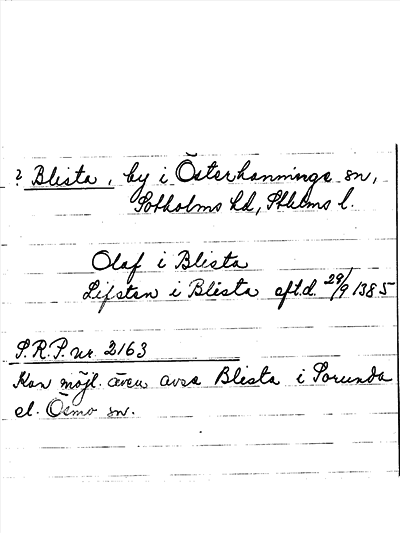 ? Blista, by i Österhanninge sn,
Sotholms hd, Sthlms l.
Olaf i Blista
Lifsten i Blista aft.d. 29/9 1385
S.R.P. nr. 2163
Kan möjl. även avse Blista i Sorunda
el. Ösmo sn.